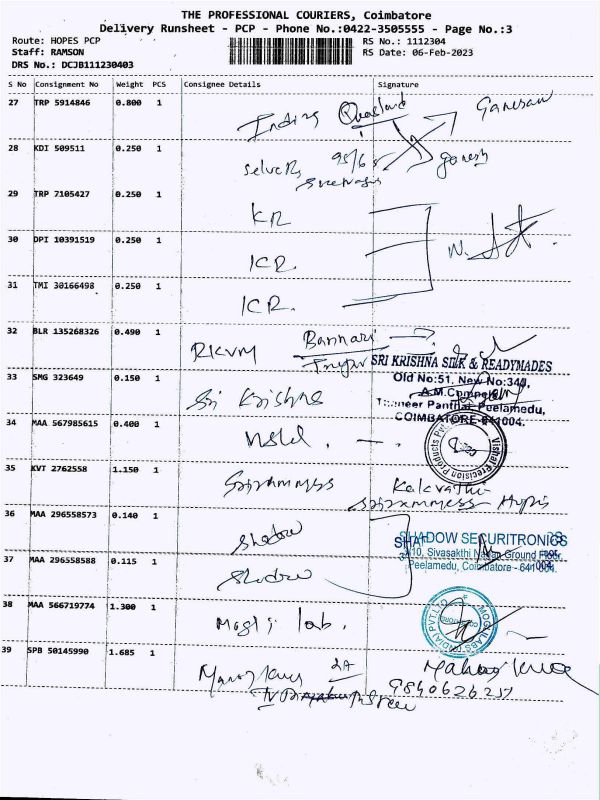 THE PROFESSIONAL COURIERS, Coimbatore
Delivery Runsheet - PCP - Phone No.:0422-3505555 - Page No.:3
Route: HOPES PCP
RS No.: 1112304
Staff: RAMSON
RS Date: 06-Feb-2023
DRS No.: DCJB111230403
S No Consignment No Weight PCS Consignee Details Signature
27 TRP 5914846 0.800 1
Ganesan
28 KDI 509511 0.250 1
ganesh
29 TRP 7105427 0.250 1 KR
30 DPI 10391519 0.250 1 ICR.
31 TMI 30166498 0.250 1 ICR.
32 BLR 135268326 0.490 1 RKVM Bannari
SRI KRISHNA SILK & READYMADES
33 SMG 323649 0.150 1 Sri Krishna
Old No:51, New No:343,
A.M.Complex
Thaneer Panthal, Peelamedu,
COIMBATORE-641004.
34 MAA 567985615 0.400 1
Vishal Precision Products Pvt
35 KVT 2762558 1.150 1
36 MAA 296558573 0.140 1 Shadow
SHADOW SECURITRONICS
Sivasakthi Nagar Ground Floor,
Peelamedu, Coimbatore - 641 004.
37 MAA 296558588 0.115 1 Shadow
38 MAA 566719774 1.300 1 Mogli lab.
MOGLI LABS (INDIA) PVT.LTD
39 SPB 50145990 1.685 1